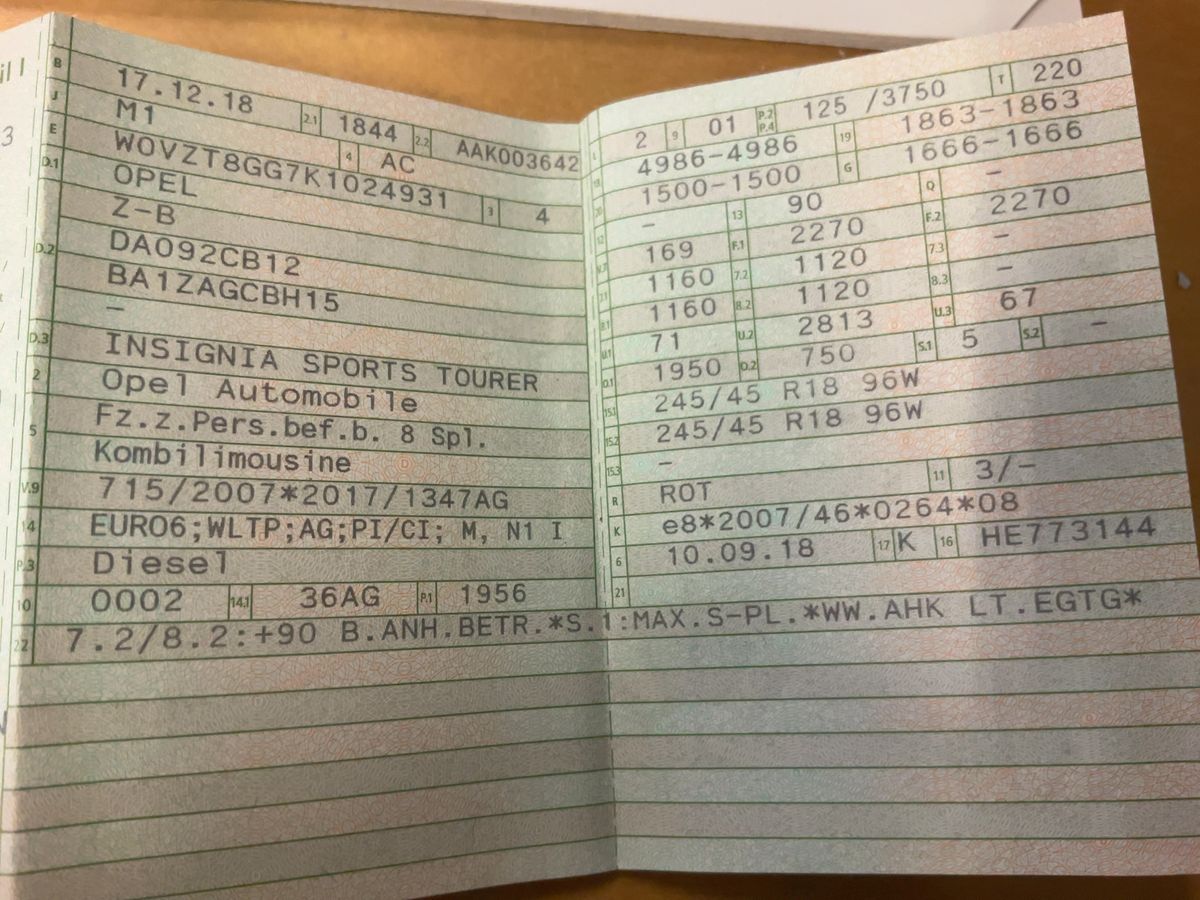 il I
3
B 17.12.18 2.1 1844 2.2 AAK003642
J M1 4 AC
E W0VZT8GG7K1024931 3 4
D.1 OPEL
Z-B
D.2 DA092CB12
BA1ZAGCBH15
–
D.3 INSIGNIA SPORTS TOURER
2 Opel Automobile
5 Fz.z.Pers.bef.b. 8 Spl.
Kombilimousine
V.9 715/2007*2017/1347AG
14 EURO6;WLTP;AG;PI/CI; M, N1 I
P.3 Diesel
10 0002 14.1 36AG P.1 1956
L 2 9 01 P.2 P.4 125 /3750 T 220
18 4986-4986 19 1863-1863
20 1500-1500 G 1666-1666
12 – 13 90 Q –
V.7 169 F.1 2270 F.2 2270
7.1 1160 7.2 1120 7.3 –
8.1 1160 8.2 1120 8.3 –
U.1 71 U.2 2813 U.3 67
O.1 1950 O.2 750 S.1 5 S.2 –
15.1 245/45 R18 96W
15.2 245/45 R18 96W
15.3 –
R ROT 11 3/–
K e8*2007/46*0264*08
6 10.09.18 17 K 16 HE773144
21
22 7.2/8.2:+90 B.ANH.BETR.*S.1:MAX.S-PL.*WW.AHK LT.EGTG*